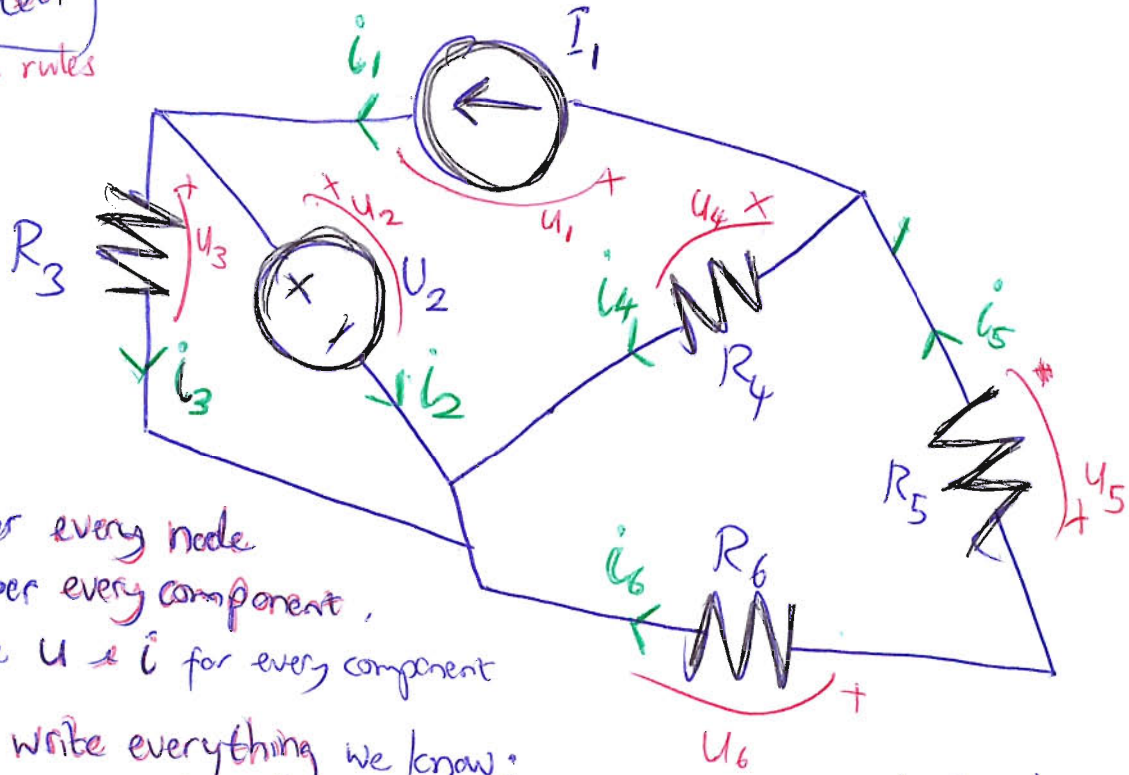 rules
i1
I1
+
u1
R3
+
u3
i3
+
u2
U2
i2
u4
+
i4
R4
i5
R5
u5
+
i6
R6
+
u6
every node
every component.
u & i for every component
write everything we know: